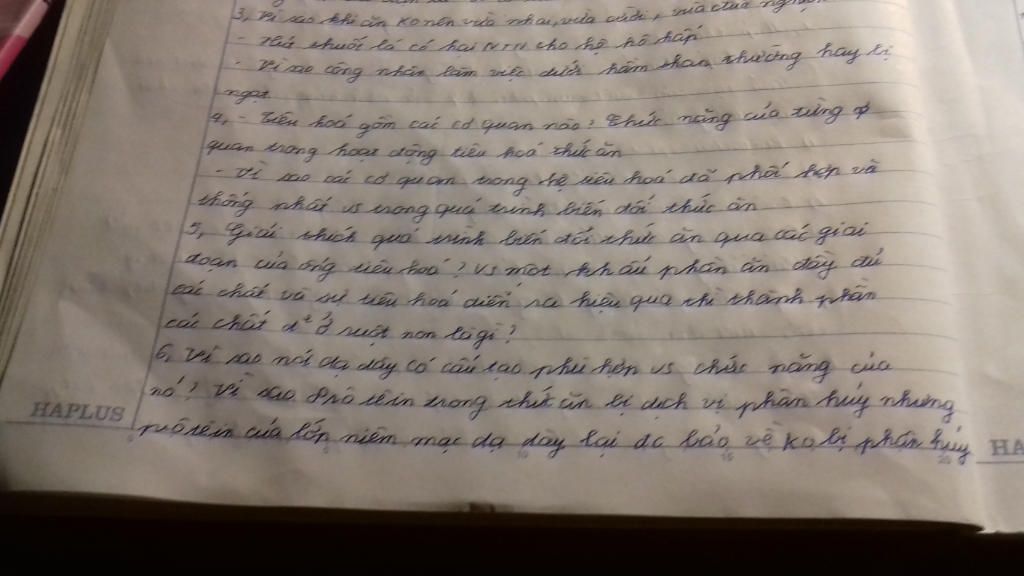 3, Vì sao khi ăn ko nên vừa nhai, vừa cười, vừa đùa nghịch
- Hút thuốc lá có hại ntn cho hệ hô hấp
- Vì sao công nhân làm việc dưới hầm than thường hay bị
ngạt
4, - Tiêu hoá gồm các cơ quan nào? Chức năng của từng cơ
quan trong hoạt động tiêu hoá thức ăn
- Vì sao các cơ quan trong hệ tiêu hoá đã phối hợp và
thống nhất vs trong quá trình biến đổi thức ăn
5, Giải thích quá trình biến đổi thức ăn qua các giai
đoạn của ống tiêu hoá? Vs một khẩu phần ăn đầy đủ
các chất và sự tiêu hoá diễn ra hiệu quả thì thành phần
các chất d² ở ruột non là gì?
6, Vì sao nói dạ dày có cấu tạo phù hợp vs chức năng của
nó? Vì sao Prôtêin trong thức ăn bị dịch vị phân hủy nhưng
prôtêin của lớp niêm mạc dạ dày lại đc bảo vệ ko bị phân hủy
HAPLUS
HA